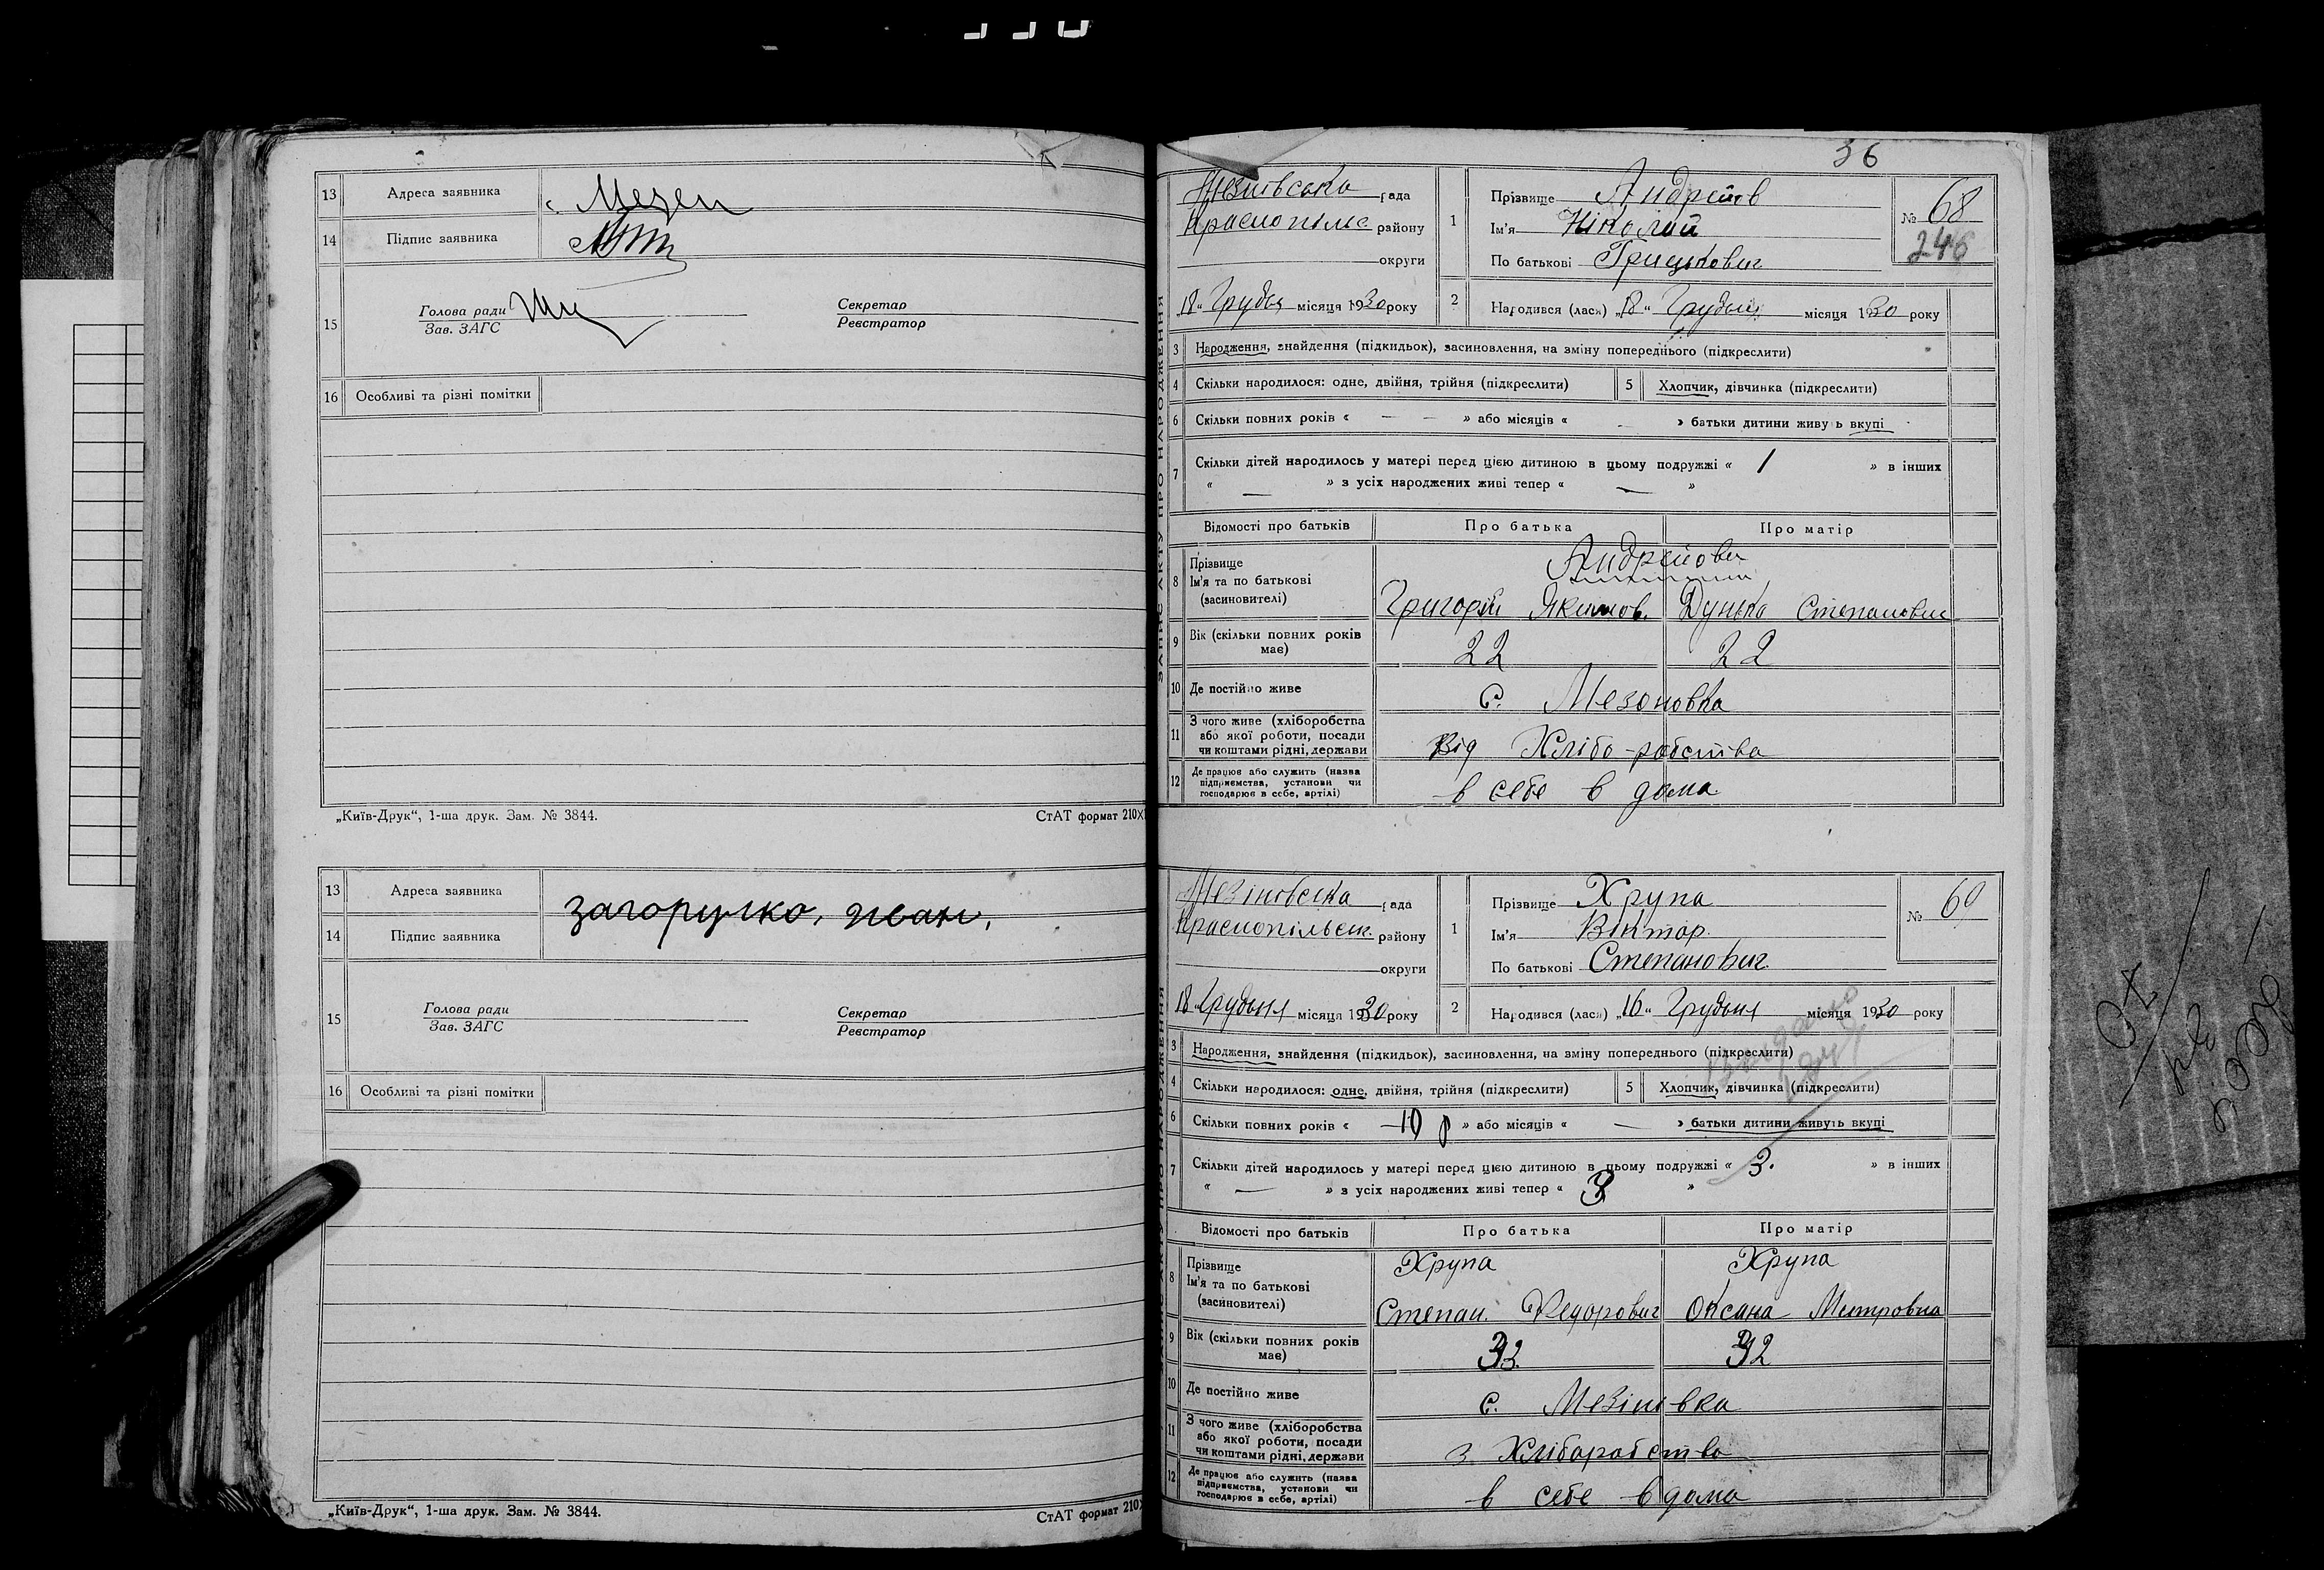 13 Адреса заявника с. Мезен
14 Підпис заявника
15 Голова ради
Зав. ЗАГС
Секретар
Реєстратор
16 Особливі та різні помітки
„Київ-Друк“, 1-ша друк. Зам. № 3844.
СтАТ формат 210×
13 Адреса заявника
загорулко, иван,
14 Підпис заявника
15 Голова ради
Зав. ЗАГС
Секретар
Реєстратор
16 Особливі та різні помітки
„Київ-Друк“, 1-ша друк. Зам. № 3844.
СтАТ формат 210×
36
ЗАПИС АКТУ ПРО НАРОДЖЕННЯ
рада
Краснопільс. району
округи
„18“ Грудня місяця 1930 року
1 Прізвище Андреїв
Ім'я Ніколай
По батькові Грицькович
№ 68
246
2 Народився (лася) „18“ Грудня місяця 1930 року
3 Народження, знайдення (підкидьок), засиновлення, на зміну попереднього (підкреслити)
4 Скільки народилося: одне, двійня, трійня (підкреслити)
5 Хлопчик, дівчинка (підкреслити)
6 Скільки повних років « — — » або місяців « — » батьки дитини живуть вкупі
7 Скільки дітей народилось у матері перед цією дитиною в цьому подружжі « 1 » в інших
« — » з усіх народжених живі тепер « — »
Відомості про батьків Про батька Про матір
8 Прізвище
Ім'я та по батькові
(засиновителі)
Андреїови
Григорій Якимов. Дунька Степановна
9 Вік (скільки повних років має) 22 22
10 Де постійно живе с. Мезоновка
11 З чого живе (хліборобства або якої роботи, посади чи коштами рідні, держави Від Хлібо-робства
12 Де працює або служить (назва підприємства, установи чи господарює в себе, артілі) в себе в дома
Мезіновська рада
Краснопільськ. району
округи
18 Грудня місяця 1930 року
1 Прізвище Хрупа
Ім'я Віктор.
По батькові Степанович
№ 69
2 Народився (лася) „16“ Грудня місяця 1930 року
3 Народження, знайдення (підкидьок), засиновлення, на зміну попереднього (підкреслити)
4 Скільки народилося: одне, двійня, трійня (підкреслити)
5 Хлопчик, дівчинка (підкреслити)
6 Скільки повних років « 10 р » або місяців « — » батьки дитини живуть вкупі
7 Скільки дітей народилось у матері перед цією дитиною в цьому подружжі « 3. » в інших
« — » з усіх народжених живі тепер « 3 »
Відомості про батьків Про батька Про матір
8 Прізвище
Ім'я та по батькові
(засиновителі)
Хрупа Хрупа
Степан. Федорович Оксана Митровна
9 Вік (скільки повних років має) 32 32
10 Де постійно живе с. Мезіновка
11 З чого живе (хліборобства або якої роботи, посади чи коштами рідні, держави з Хлібаробства
12 Де працює або служить (назва підприємства, установи чи господарює в себе, артілі) в себе в дома